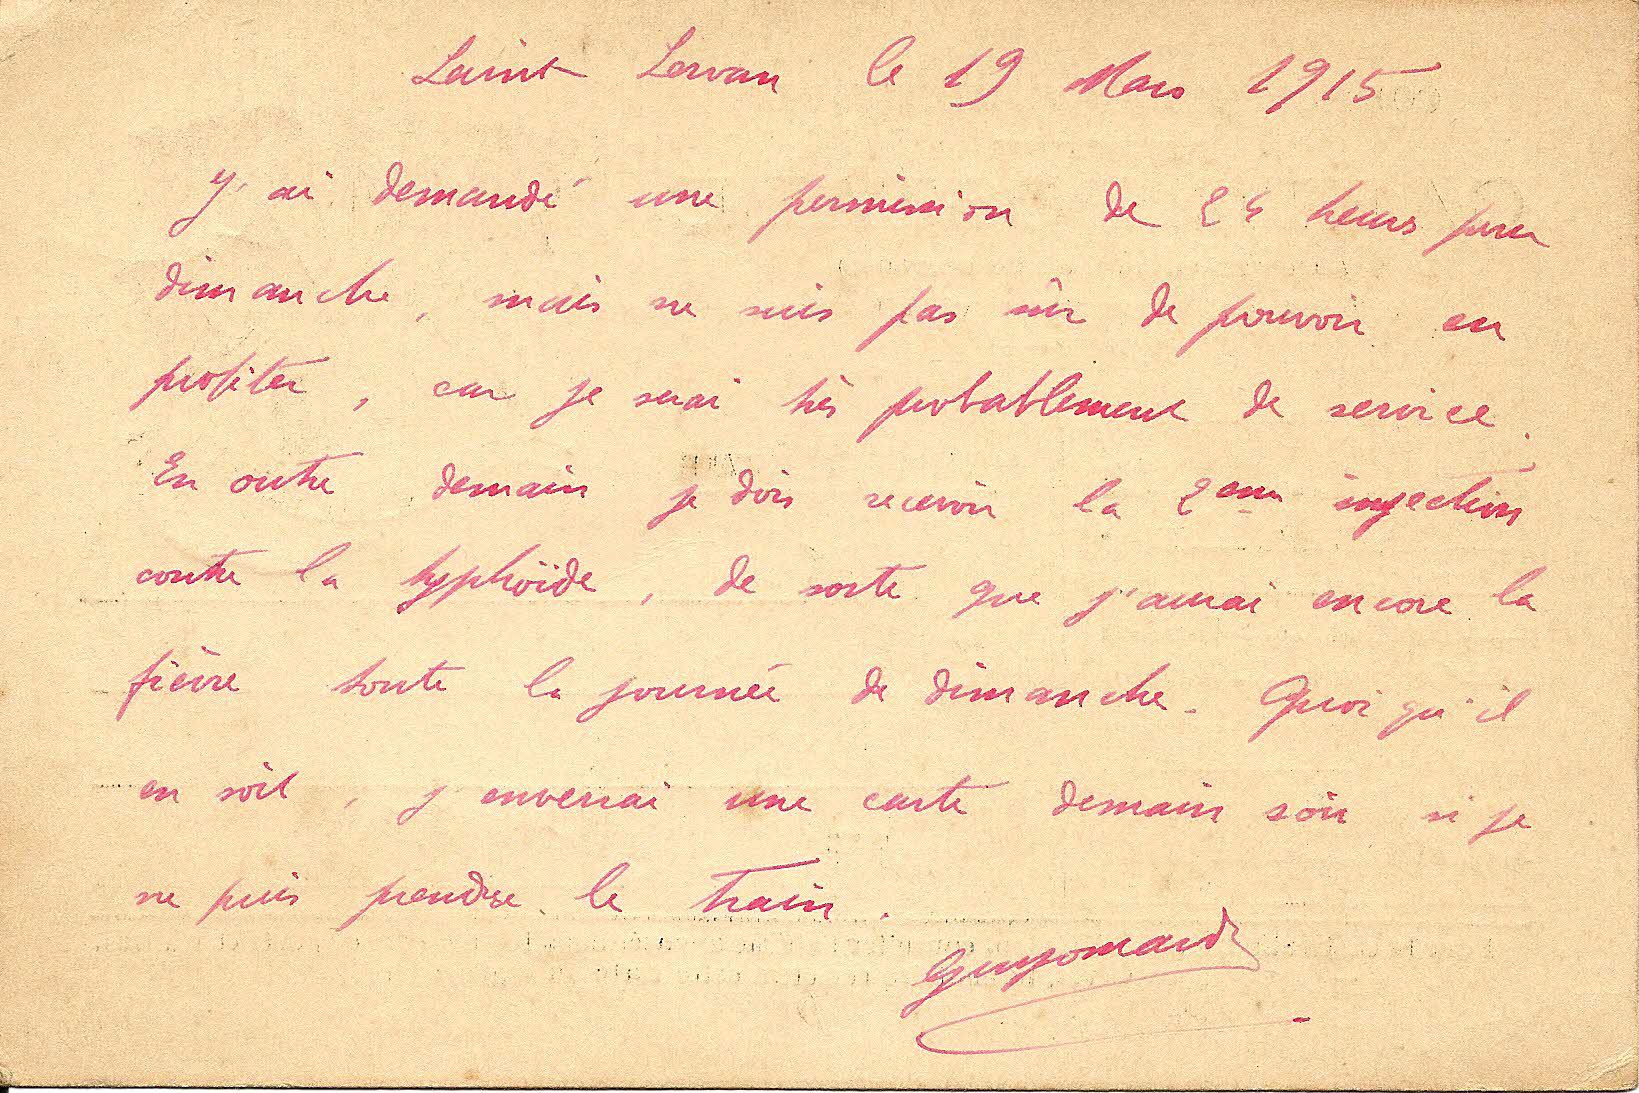 Saint Servan le 19 Mars 1915
J'ai demandé une permission de 24 heures pour
dimanche, mais ne suis pas sûr de pouvoir en
profiter, car je serai très probablement de service.
En outre demain je dois recevoir la 2ème injection
contre la typhoïde, de sorte que j'aurai encore la
fièvre toute la journée de dimanche. Quoi qu'il
en soit, j'enverrai une carte demain soir si je
ne puis prendre le train.
Guyomard